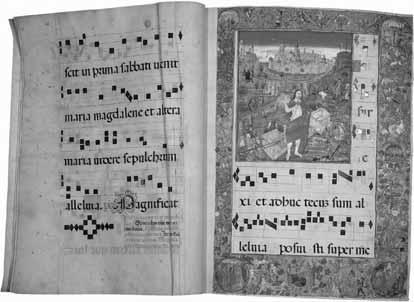 scit in prima sabbati venit
maria magdalene et altera
maria videre sepulchrum
alleluia. Magnificat
xi et adhuc tecus sum al
leluia posui sti super me